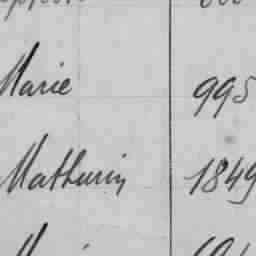 Marie 995
Mathurin 1849